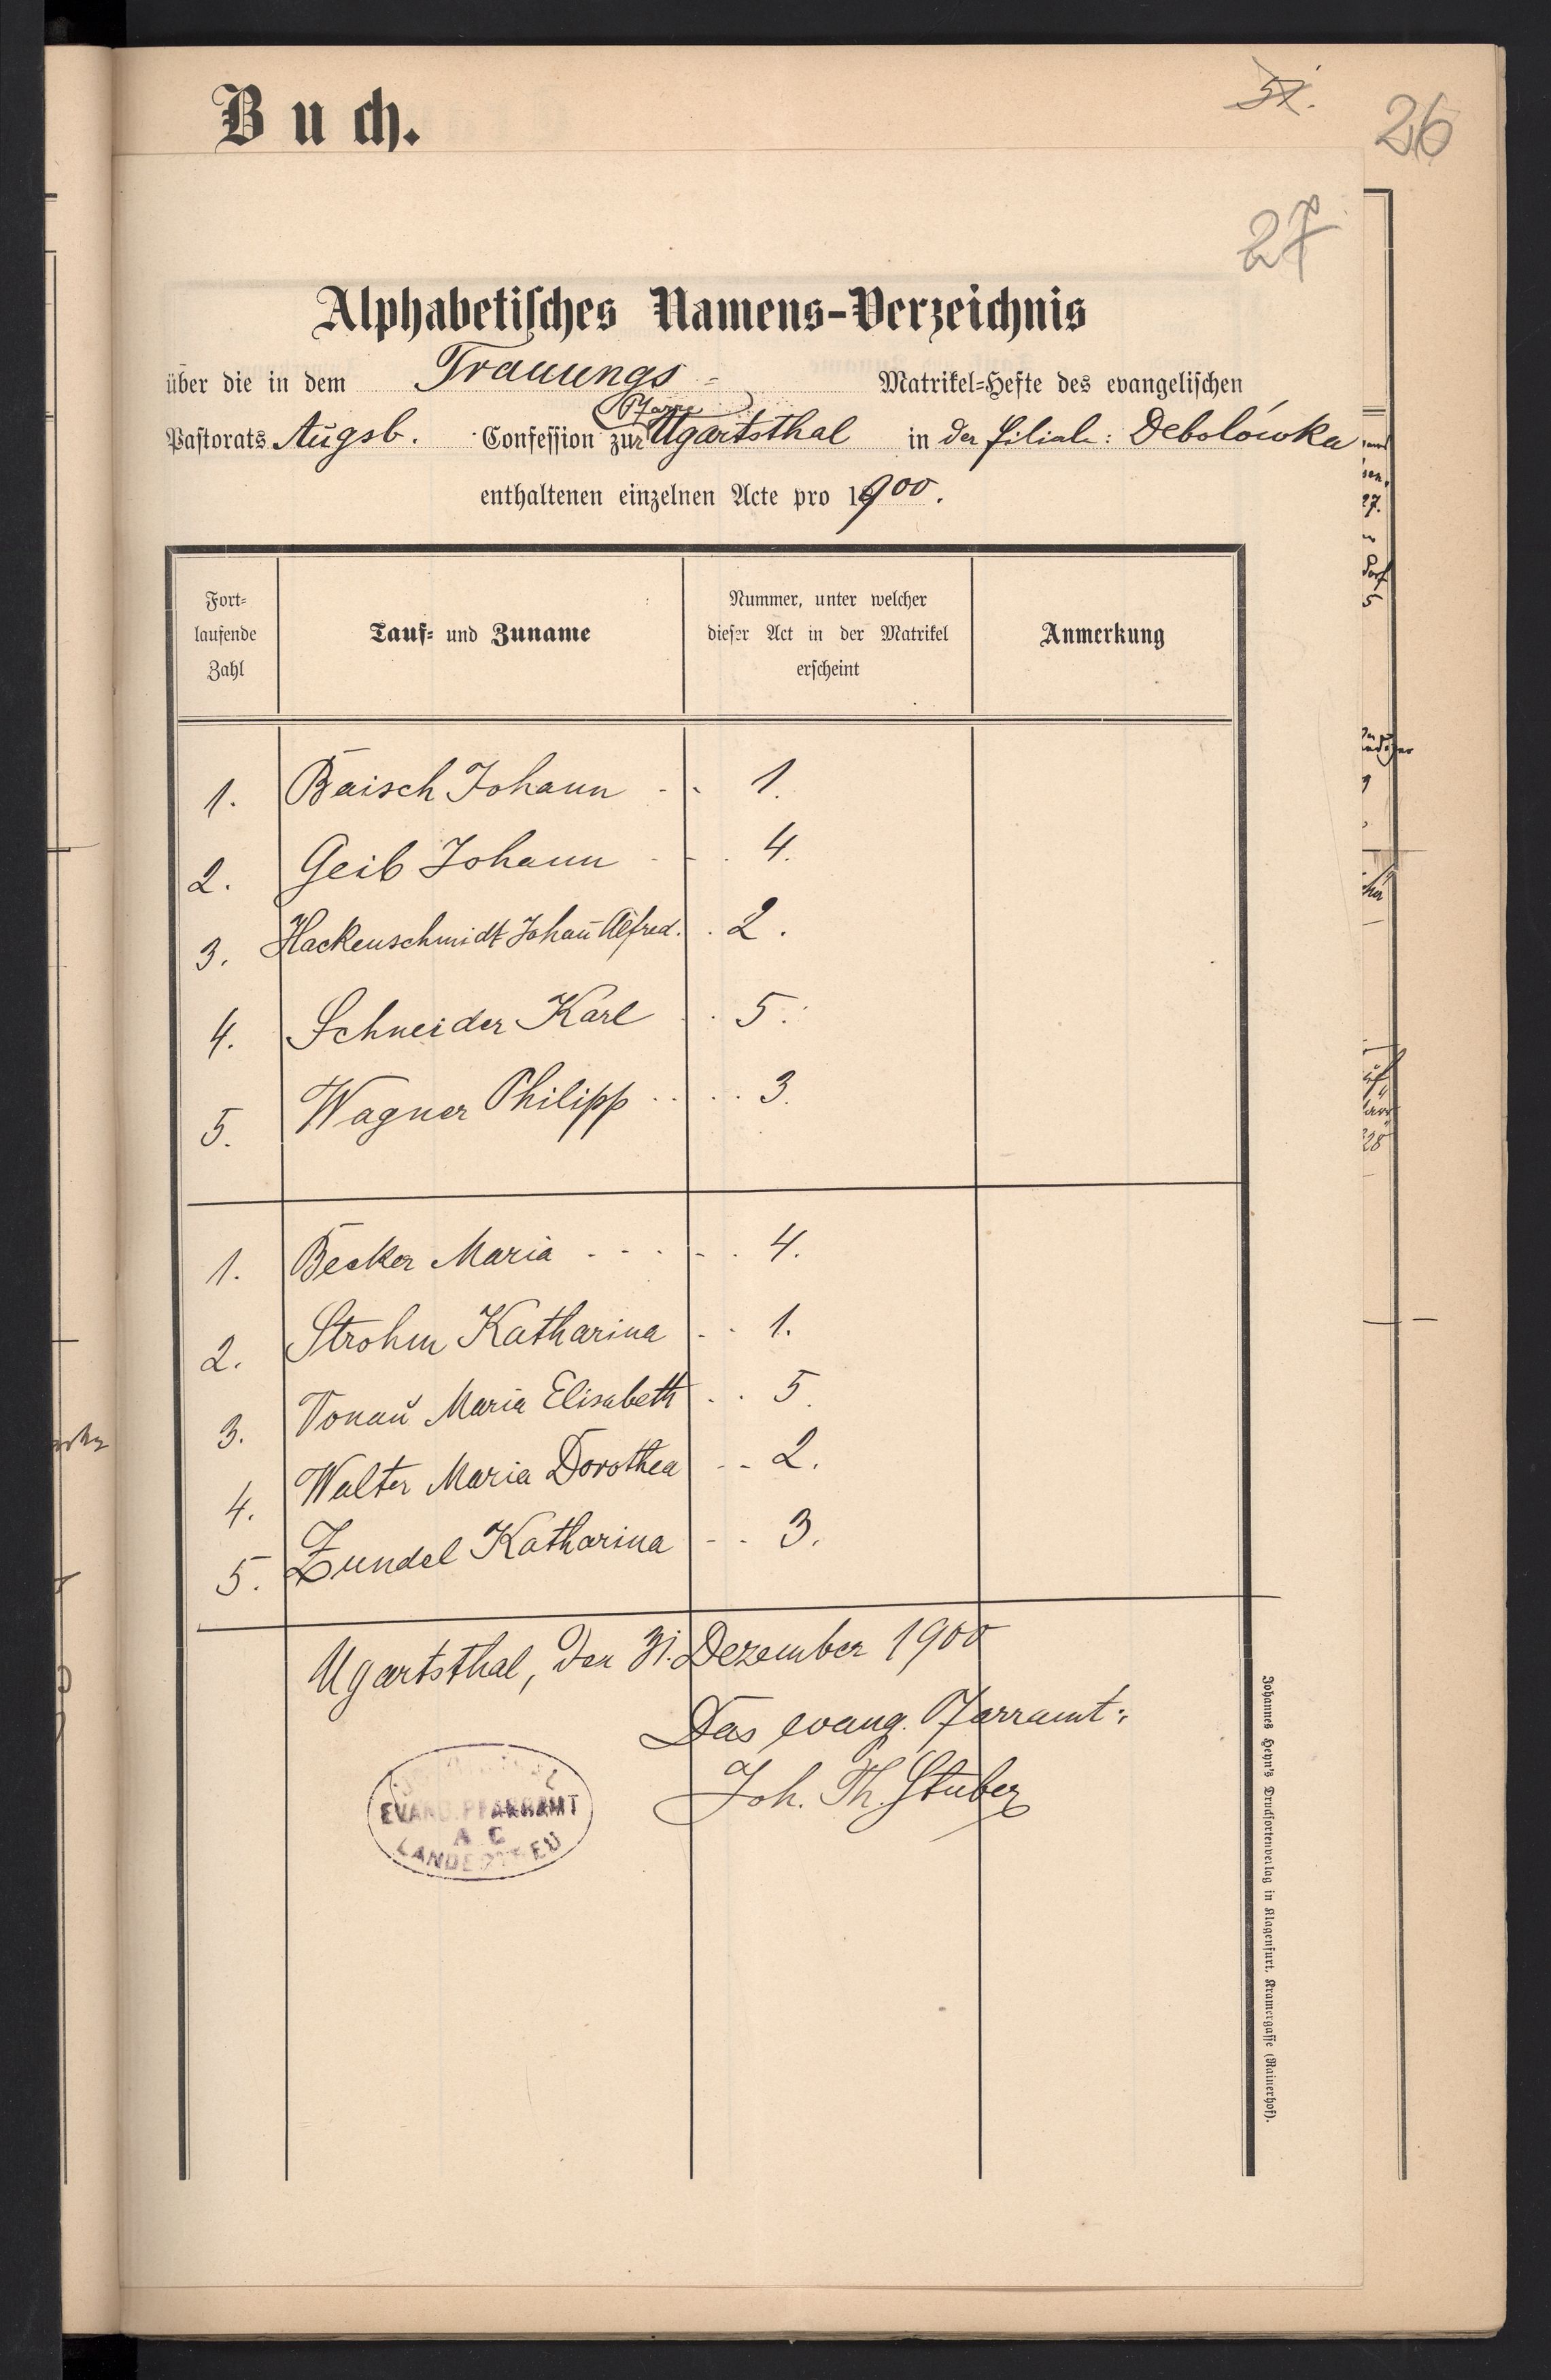 Buch.
26
27
Alphabetisches Namens-Verzeichnis
über die in dem Trauungs- Matrikel-Hefte des evangelischen
Pfarre
Pastorats Augsb. Confession zur Ugartsthal in der Filiale: Debolówka
enthaltenen einzelnen Acte pro 1900.
Fort-
laufende
Zahl
Tauf- und Zuname
Nummer, unter welcher
dieser Act in der Matrikel
erscheint
Anmerkung
1. Baisch Johann - . 1.
2. Geib Johann - - . 4.
3. Hackenschmidt Johañ Alfred. . 2.
4. Schneider Karl . . 5.
5. Wagner Philipp . . . . 3.
1. Becker Maria - - - - . 4.
2. Strohm Katharina - . 1.
3. Vonau Maria Elisabeth . . 5.
4. Walter Maria Dorothea - - 2.
5. Zundel Katharina - - 3.
Ugartsthal, den 31. Dezember 1900
Das evang. Pfarramt:
Joh. Th. Stuber
EVANG. PFARRAMT
A C
LANDESTREU
Johannes Heyn's Drucksortenverlag in Klagenfurt, Kramergasse (Rainerhof).